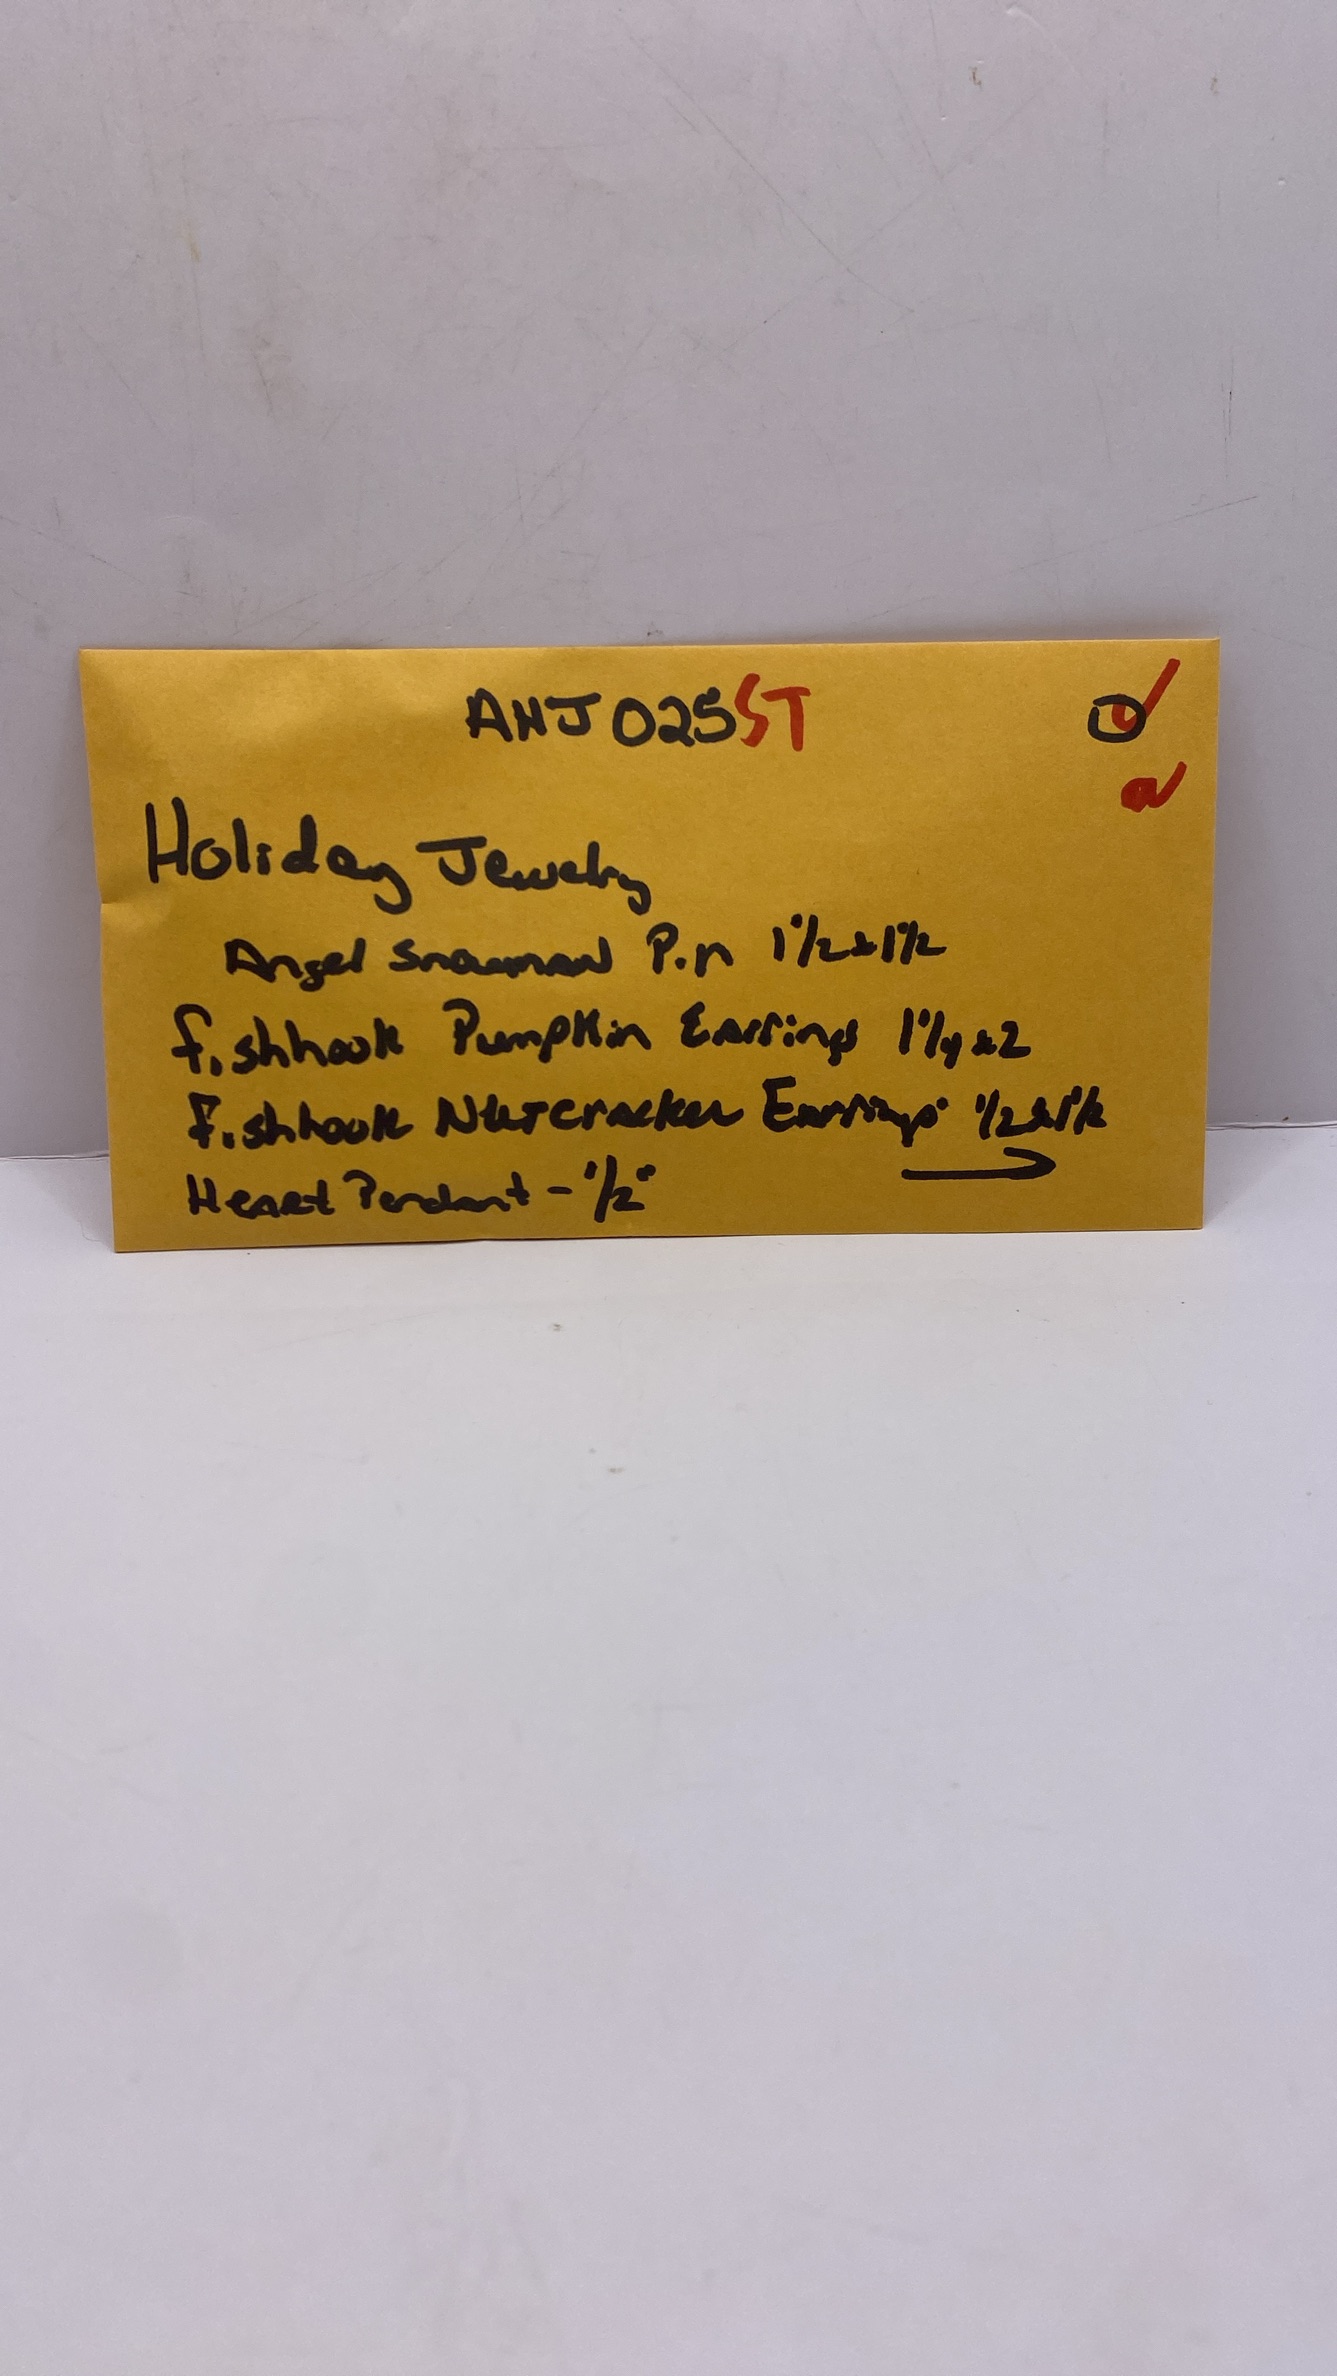 AHJ025ST
Holiday Jewelry
Angel Snowman Pin 1 1/2 x 1 1/2
Fishhook Pumpkin Earrings 1 1/4 x 2
Fishhook Nutcracker Earrings 1/2 x 1 1/2
Heart Pendant - 1/2"